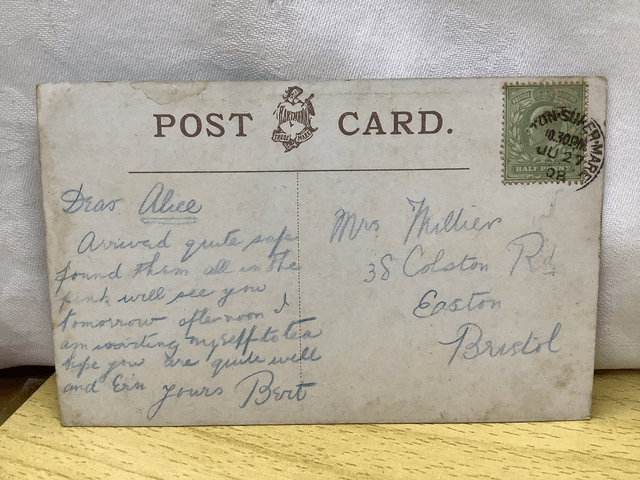 POST CARD.
HARTMANN
TRADE MARK
TON-SUPER-MARE
10.30PM
JU 27
08
HALF PENNY
Dear Alice
Arrived quite safe
found them all in the
pink will see you
tomorrow afternoon I
am inviting myself to tea
hope you are quite well
and Ern yours Bert
Mrs Millier
38 Colston Rd
Easton
Bristol